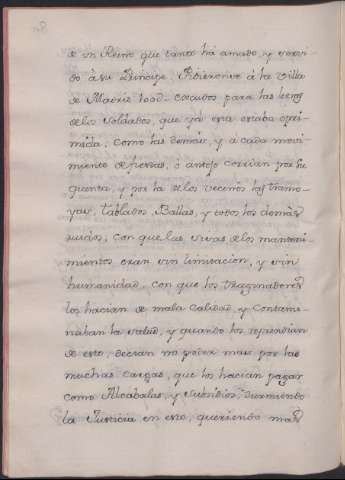 de un Reino que tanto há amado, y servi-
do á su Principe. Pidieronse á la Villa
de Madrid 1000 escudos para las levas
de los Soldados, que yá era estaba opri-
mida, como las demás, y á cada movi-
miento de fiestas, ó antojo corrian por su
quenta, y por la de los vecinos los tramo-
yas, tablados, Ballas, y todos los demás
ruidos, con que las sisas de los manteni-
mientos eran sin limitacion, y sin
humanidad, con que los tragineadores
los hacian de mala calidad, y contami-
naban la salud, y quando los reprendian
de esto, decian no poder mas por las
muchas cargas, que los hacian pagar
como Alcabalas, y subsidios, durmiendo
la Justicia en esto, queriendo mas